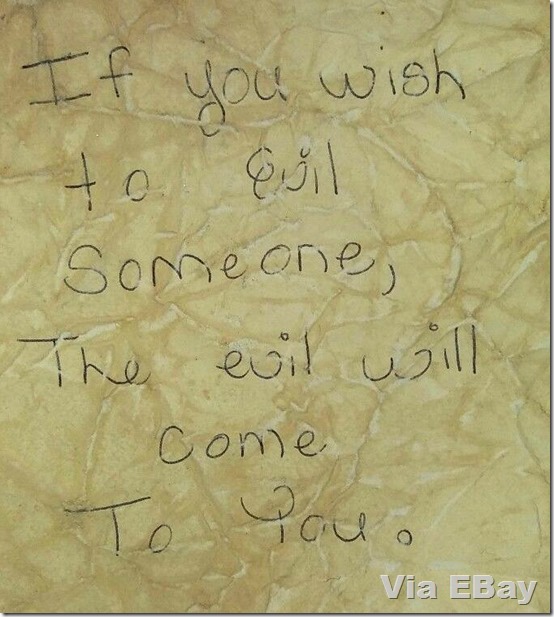 If you wish
to Evil
Someone,
The evil will
come
To You.
Via EBay